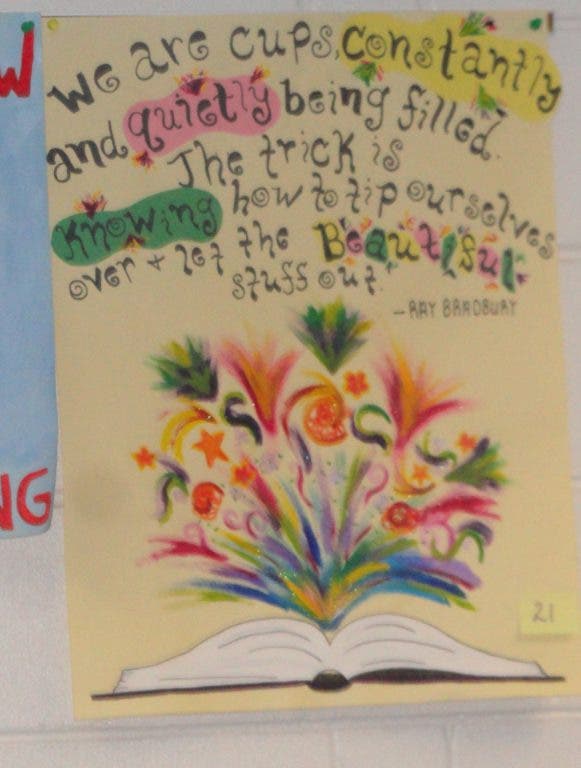 we are cups, constantly
and quietly being filled.
The trick is
knowing how to tip ourselves
over + let the Beautiful
stuff out.
—RAY BRADBURY
21
W
NG